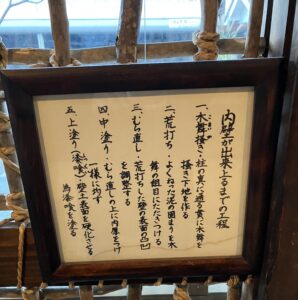 内壁が出来上るまでの工程
一、木舞掻き・柱の真に通る貫に木舞を
掻き下地を作る
二、荒打ち・よくねった泥の固まりを木
舞の組目にたたきつける
三、むら直し・荒打ちした壁の表面の凸凹
を調整する
四、中塗り・むら直しの上に均厚をつけ
一様に均す
五、上塗り(漆喰)・壁土表面を硬化させる
為漆喰を塗る